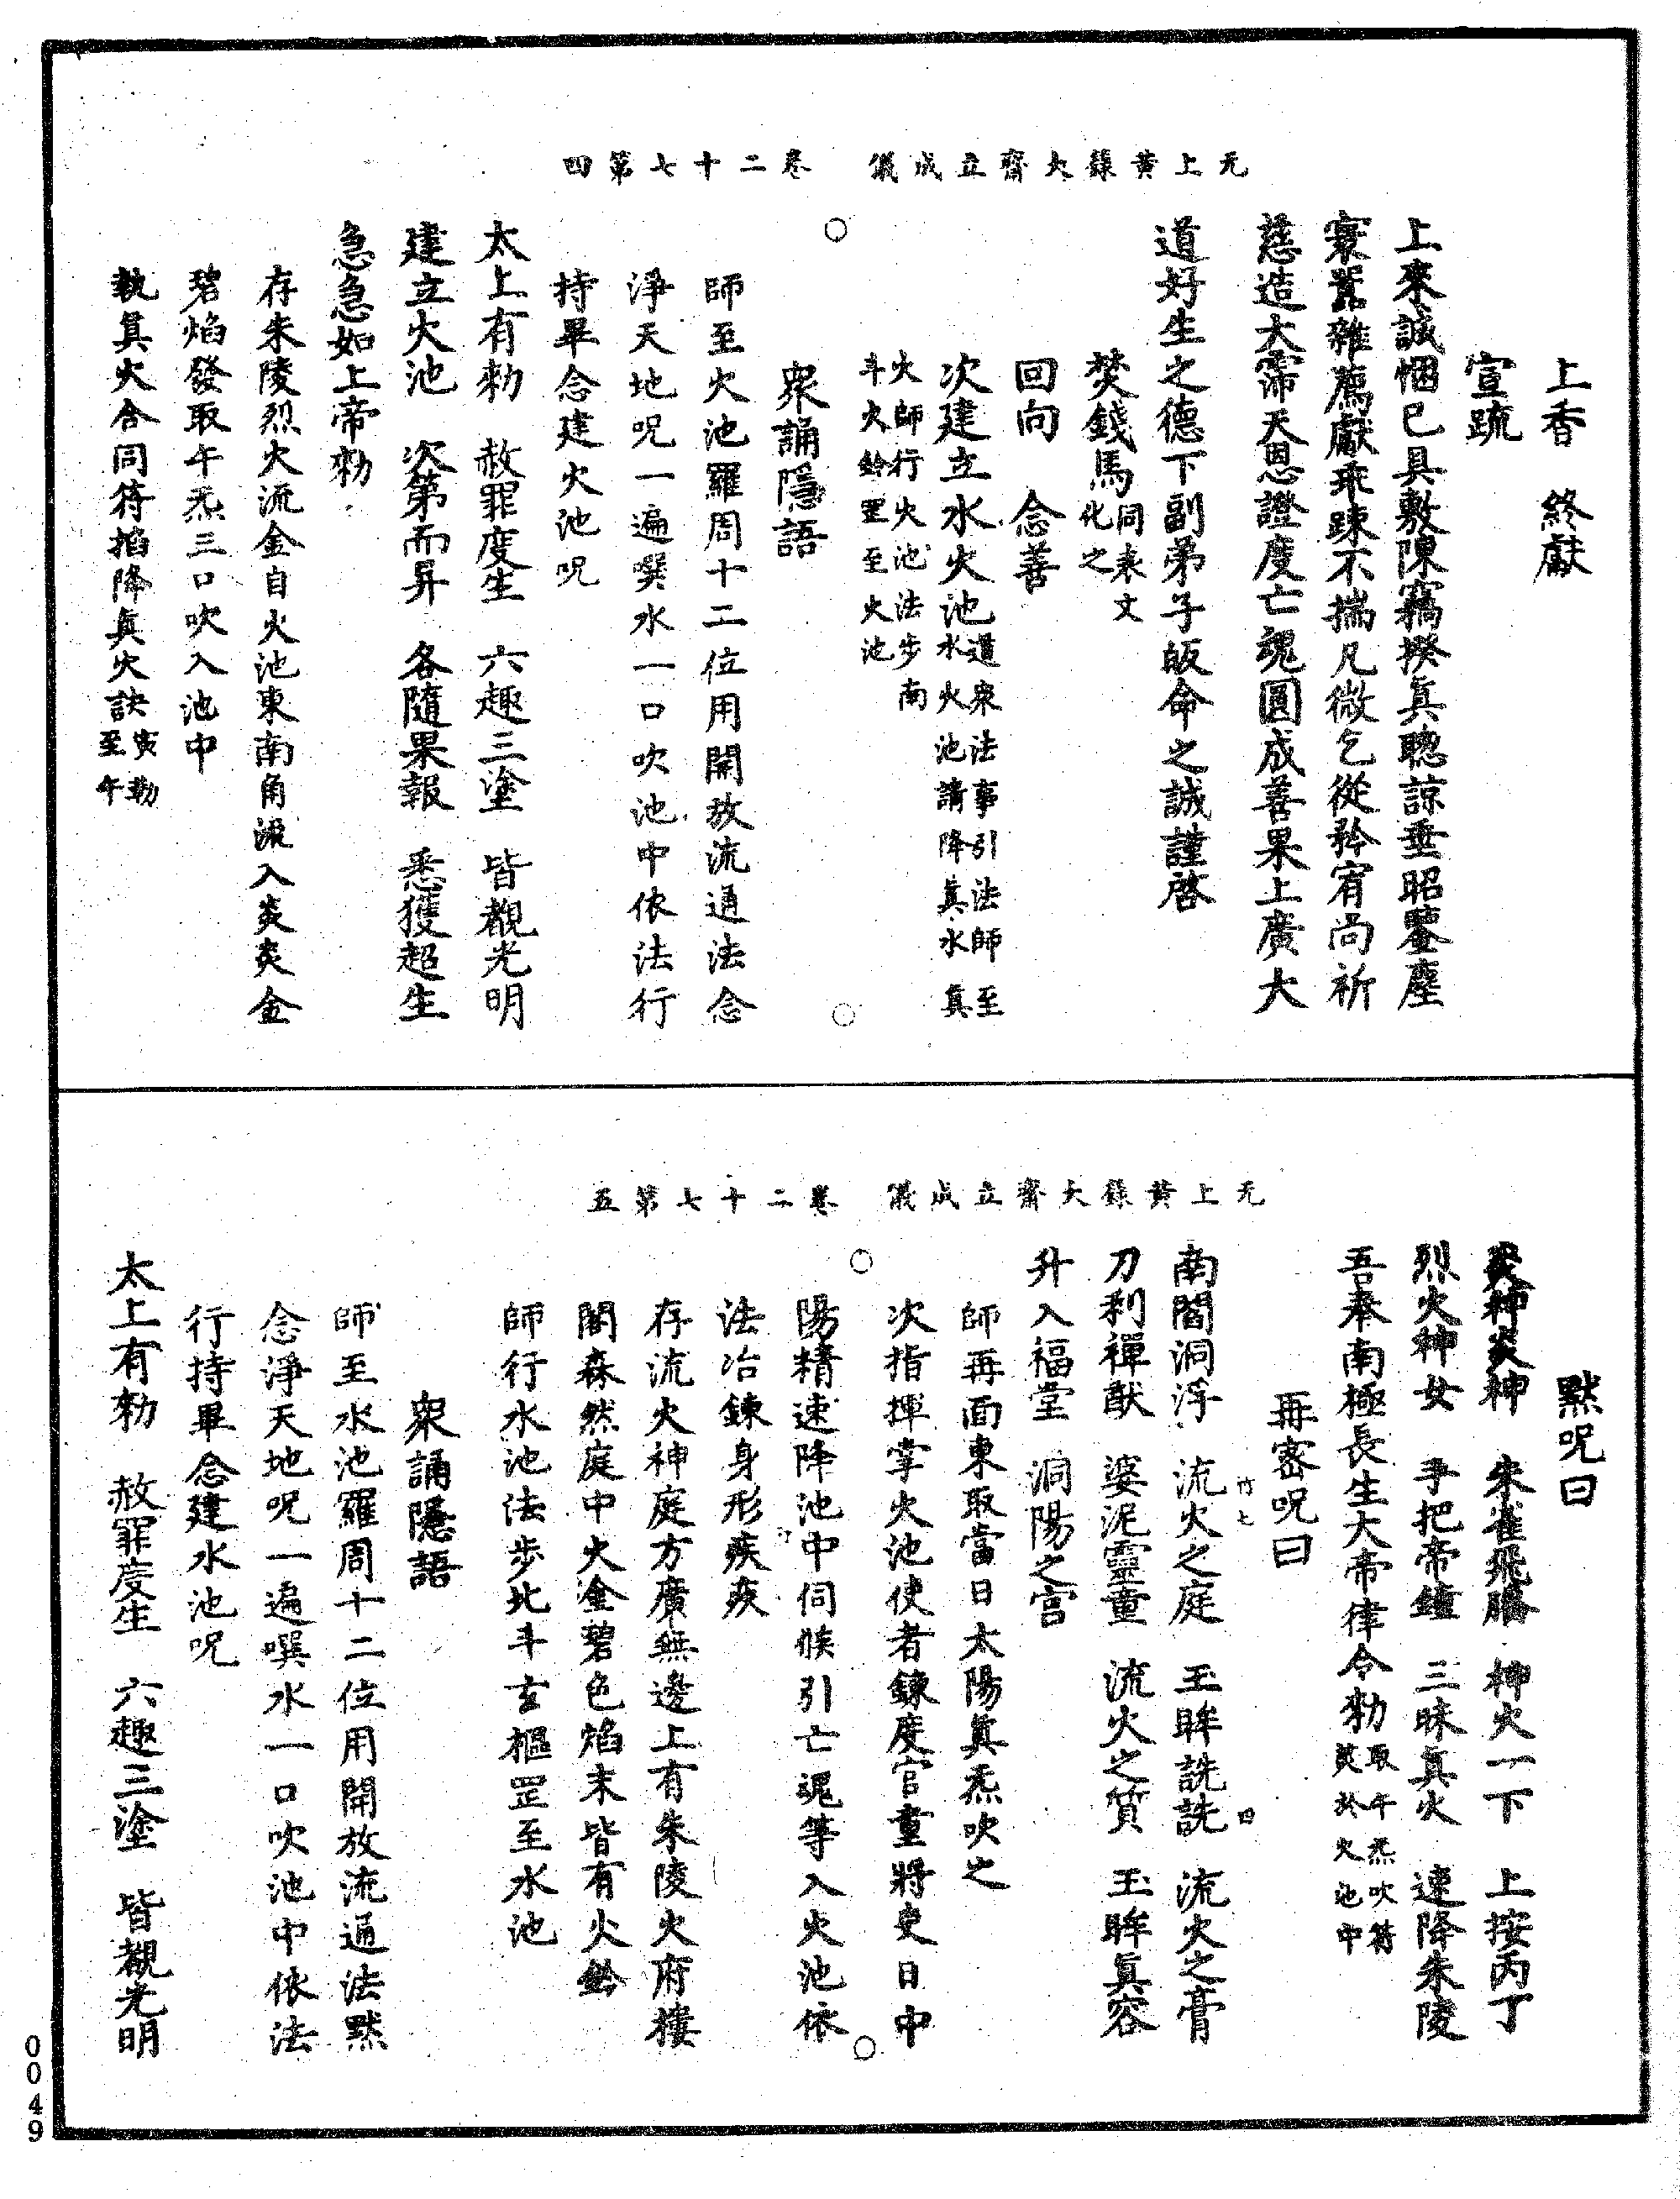 无上黃籙大齋立成儀 卷二十七第四
上香 終獻
宣疏
上來誠悃已具敷陳竊揆眞聰諒垂昭鑒塵
寰囂雜薦獻乖踈不揣凡微乞從矜宥尚祈
慈造大霈天恩證度亡魂圓成善果上廣大
道好生之德下副弟子皈命之誠謹啓
焚錢馬同表文化之
回向 念善
次建立水火池道衆法事引法師至水火池請降眞水眞
火師行火池法步南斗火鈴罡至火池
衆誦隱語
師至火池羅周十二位用開放流通法念
淨天地呪一遍噀水一口吹池中依法行
持畢念建火池呪
太上有勑 赦罪度生 六趣三塗 皆覩光明
建立火池 次第而昇 各隨果報 悉獲超生
急急如上帝勑
存朱陵烈火流金自火池東南角流入炎炎金
碧焰發取午炁三口吹入池中
執眞火合同符掐降眞火訣寅勒至午
无上黃籙大齋立成儀 卷二十七第五
黙呪曰
炎神炎神 朱雀飛騰 神火一下 上按丙丁
烈火神女 手把帝鐘 三昧眞火 速降朱陵
吾奉南極長生大帝律令勑取午炁吹符焚於火池中
再密呪曰
南閻洞浮 流火之庭 玉眸詵詵 流火之膏
刀利禪猷 婆泥靈童 流火之質 玉眸眞容
升入福堂 洞陽之宫
師再面東取當日太陽眞炁吹之
次指揮掌火池使者鍊度官童將吏日中
陽精速降池中伺候引亡魂等入火池依
法冶鍊身形疾疾
存流火神庭方廣無邊上有朱陵火府樓
閣森然庭中火金碧色焰末皆有火鈴
師行水池法步北斗玄樞罡至水池
衆誦隱語
師至水池羅周十二位用開放流通法黙
念淨天地呪一遍噀水一口吹池中依法
行持畢念建水池呪
太上有勑 赦罪度生 六趣三塗 皆覩光明
0049